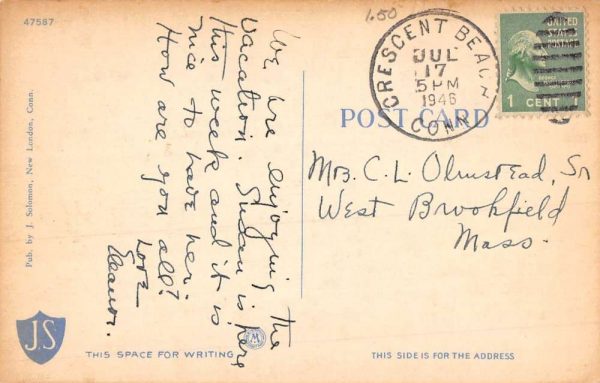 47587
1.50
CRESCENT BEACH
JUL
17
5 PM
1946
CONN.
UNITED
STATES
POSTAGE
1 CENT 1
POST CARD
We are enjoying the
vacation. Susan is here
this week and it is
nice to have her.
How are you all?
Love
Eleanor.
Mrs. C. L. Olmstead, Sr
West Brookfield
Mass.
Pub. by J. Solomon, New London, Conn.
JS
THIS SPACE FOR WRITING
M
THIS SIDE IS FOR THE ADDRESS